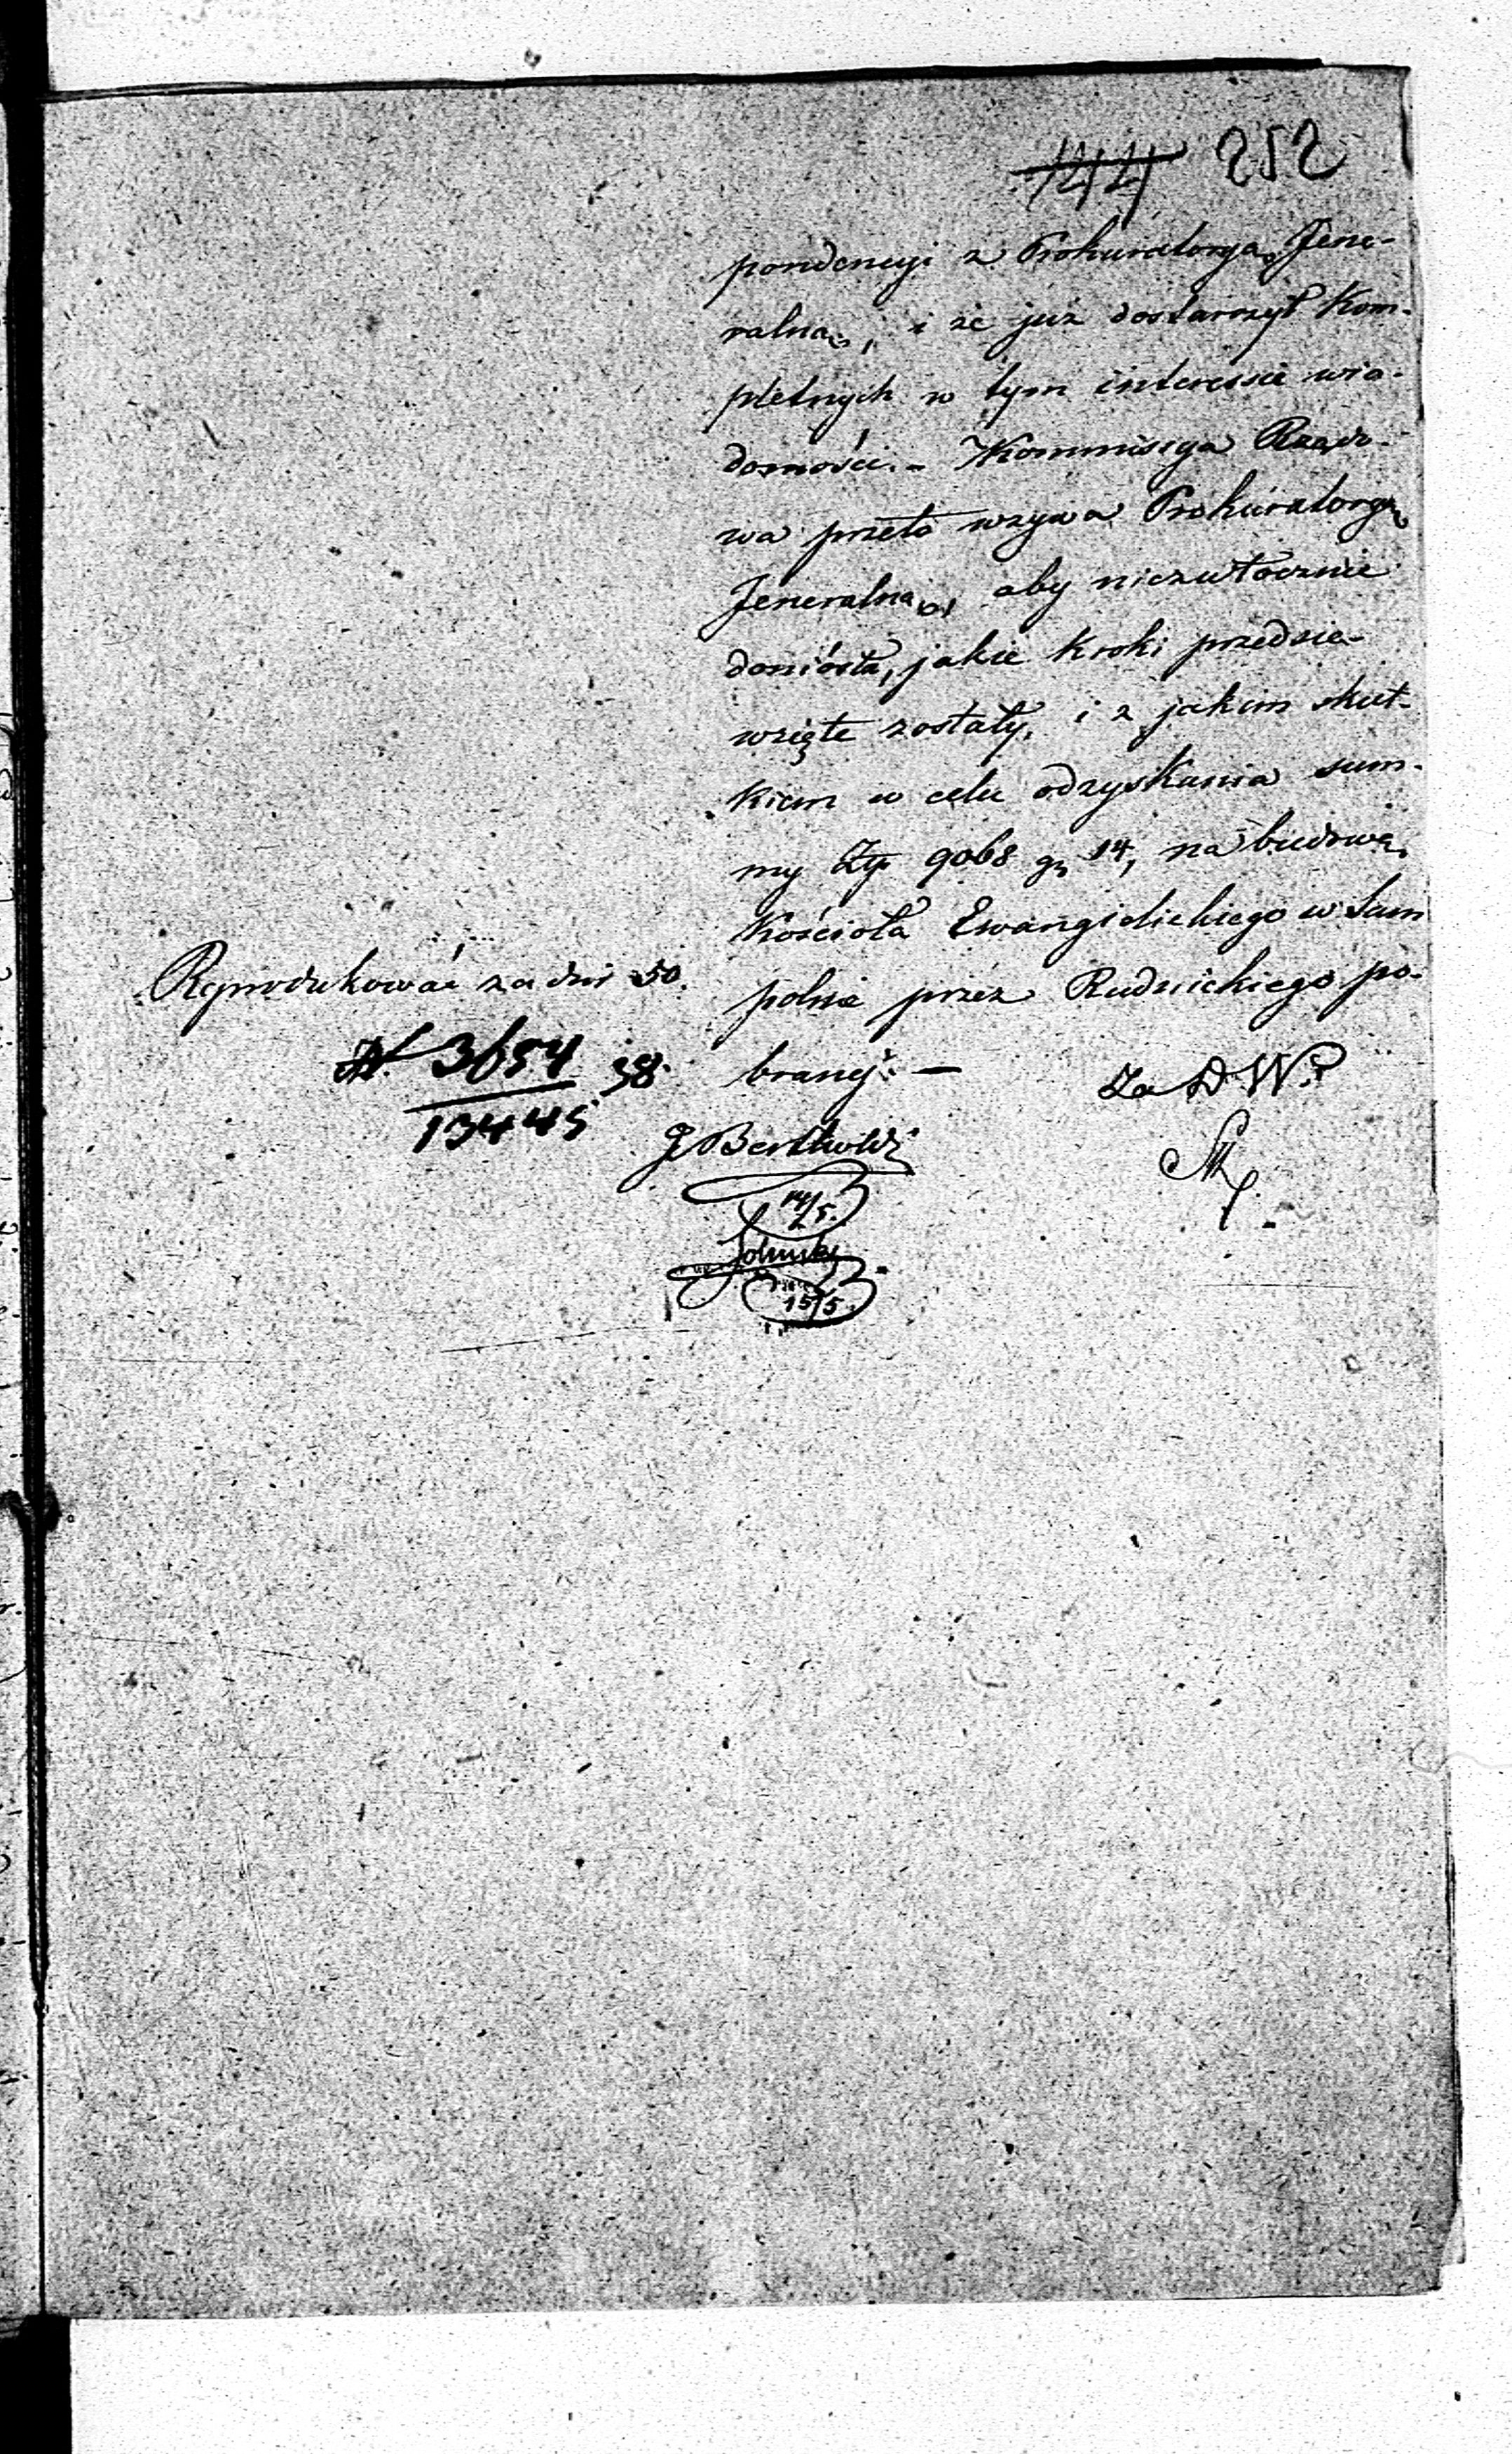 144 252
pondencyi z Prokuratoryą Jene-
ralną, i że już dostarczył kom-
pletnych w tym interessie wia-
domości. - Kommissya Rządo-
wa przeto wzywa Prokuratoryą
Jeneralną, aby niezwłocznie
doniosła, jakie kroki przedsie-
wzięte zostały, i z jakim skut-
kiem w celu odzyskania sum-
my Zp 9068 gr 14, na budowę
Kościoła Ewangielickiego w Sam
polnie przez Rudnickiego po-
braney. —
Reprodukować za dni 50.
N. 3654 / 13445 38.
Za D. W.
J Berthold
14/5.
15/5.